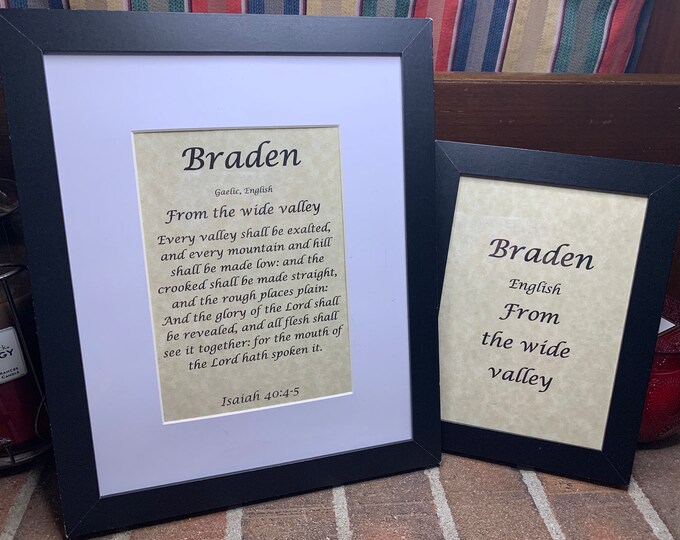 Braden
Gaelic, English
From the wide valley
Every valley shall be exalted,
and every mountain and hill
shall be made low: and the
crooked shall be made straight,
and the rough places plain:
And the glory of the Lord shall
be revealed, and all flesh shall
see it together: for the mouth of
the Lord hath spoken it.
Isaiah 40:4-5
Braden
English
From
the wide
valley